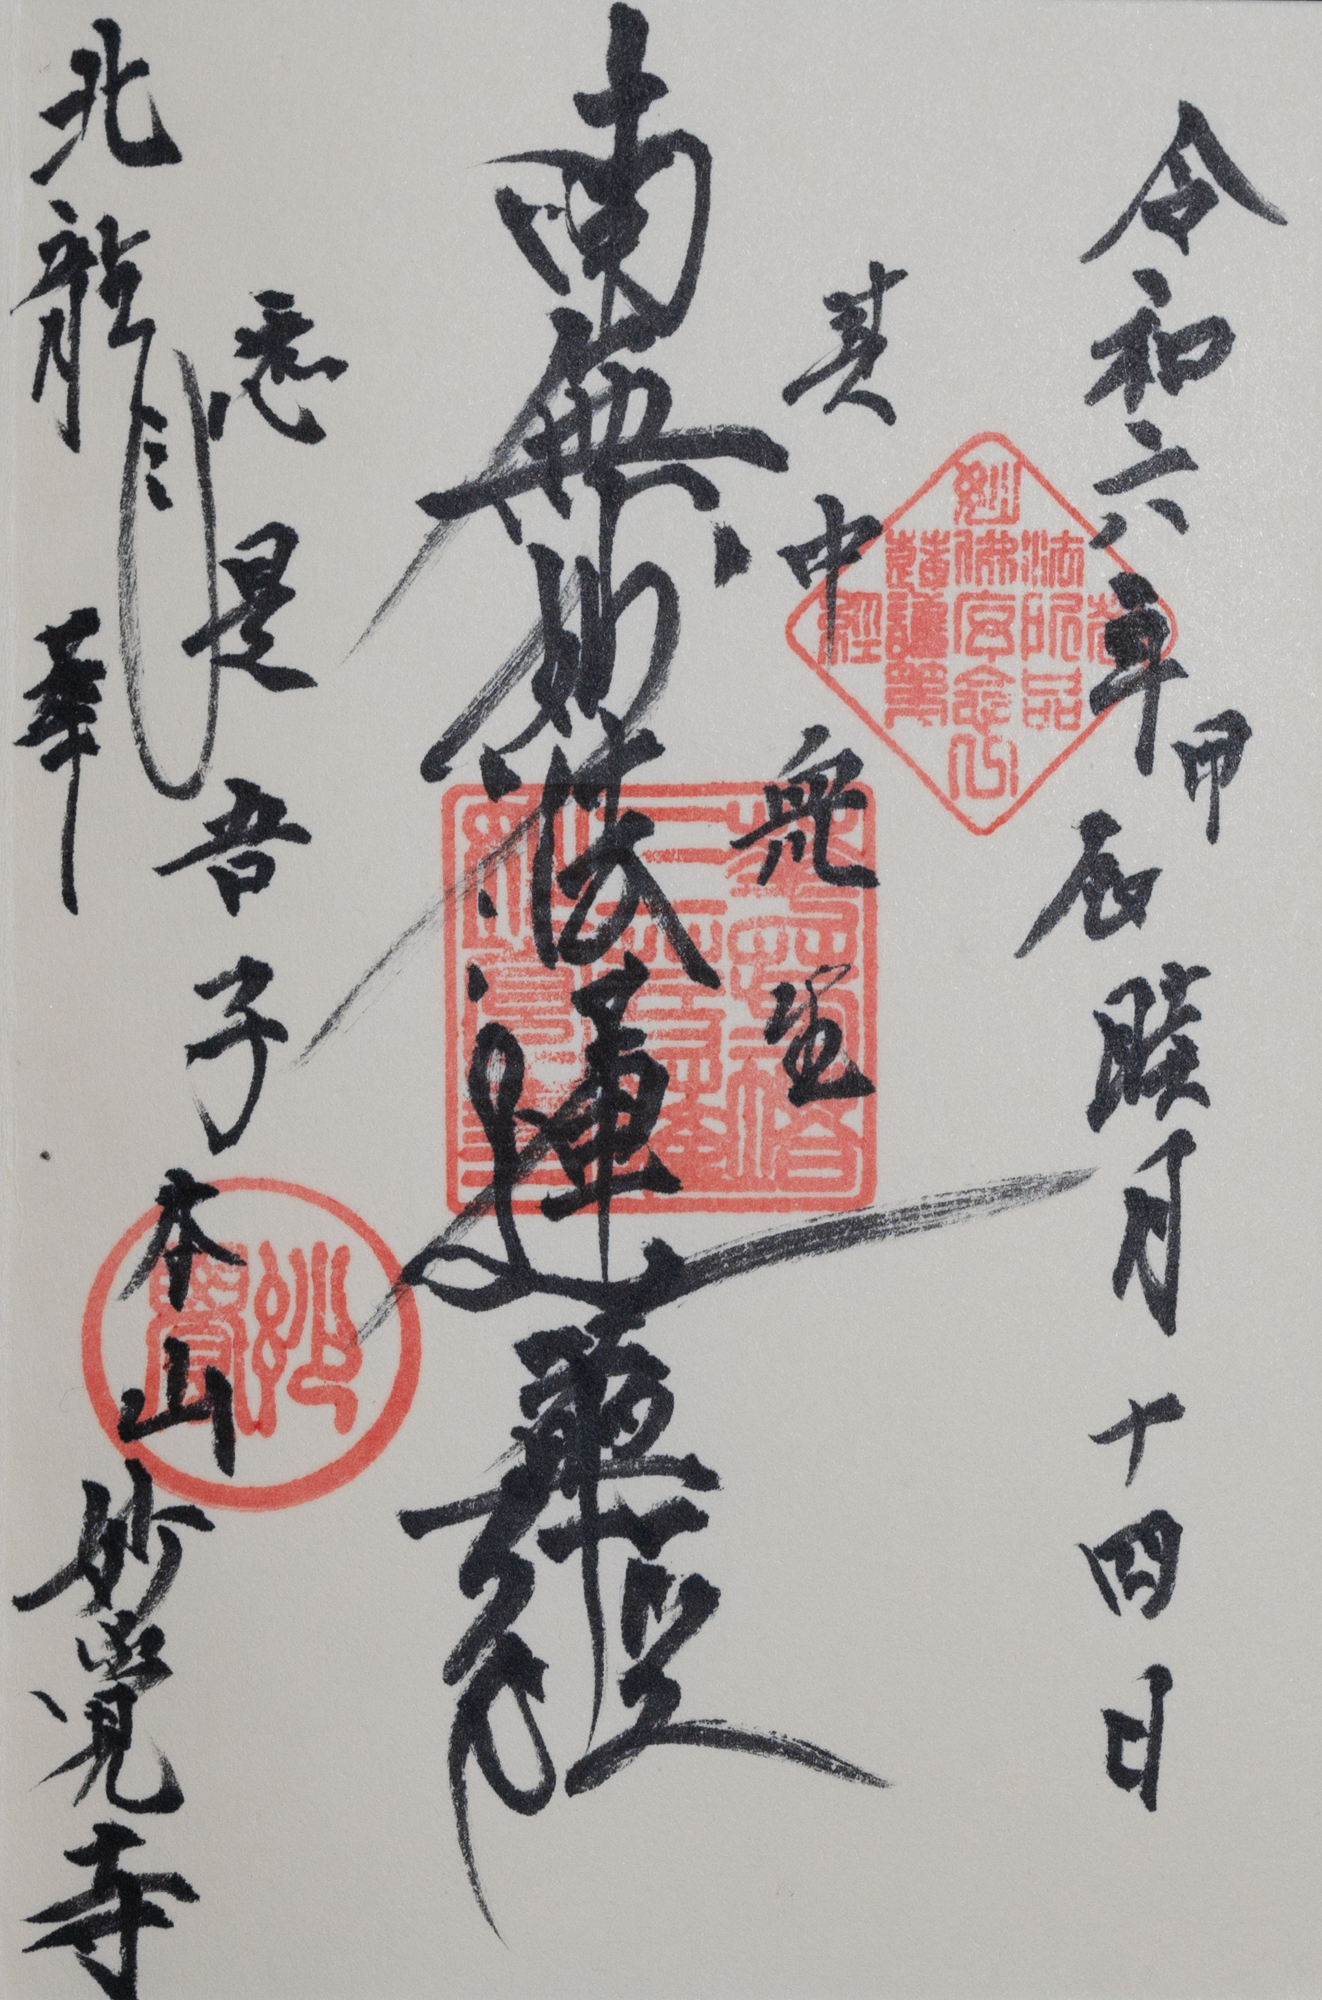 令和六年甲辰睦月十四日
其中衆生
南無妙法蓮華経
悉是吾子
本山妙覺寺
北龍華
妙覺